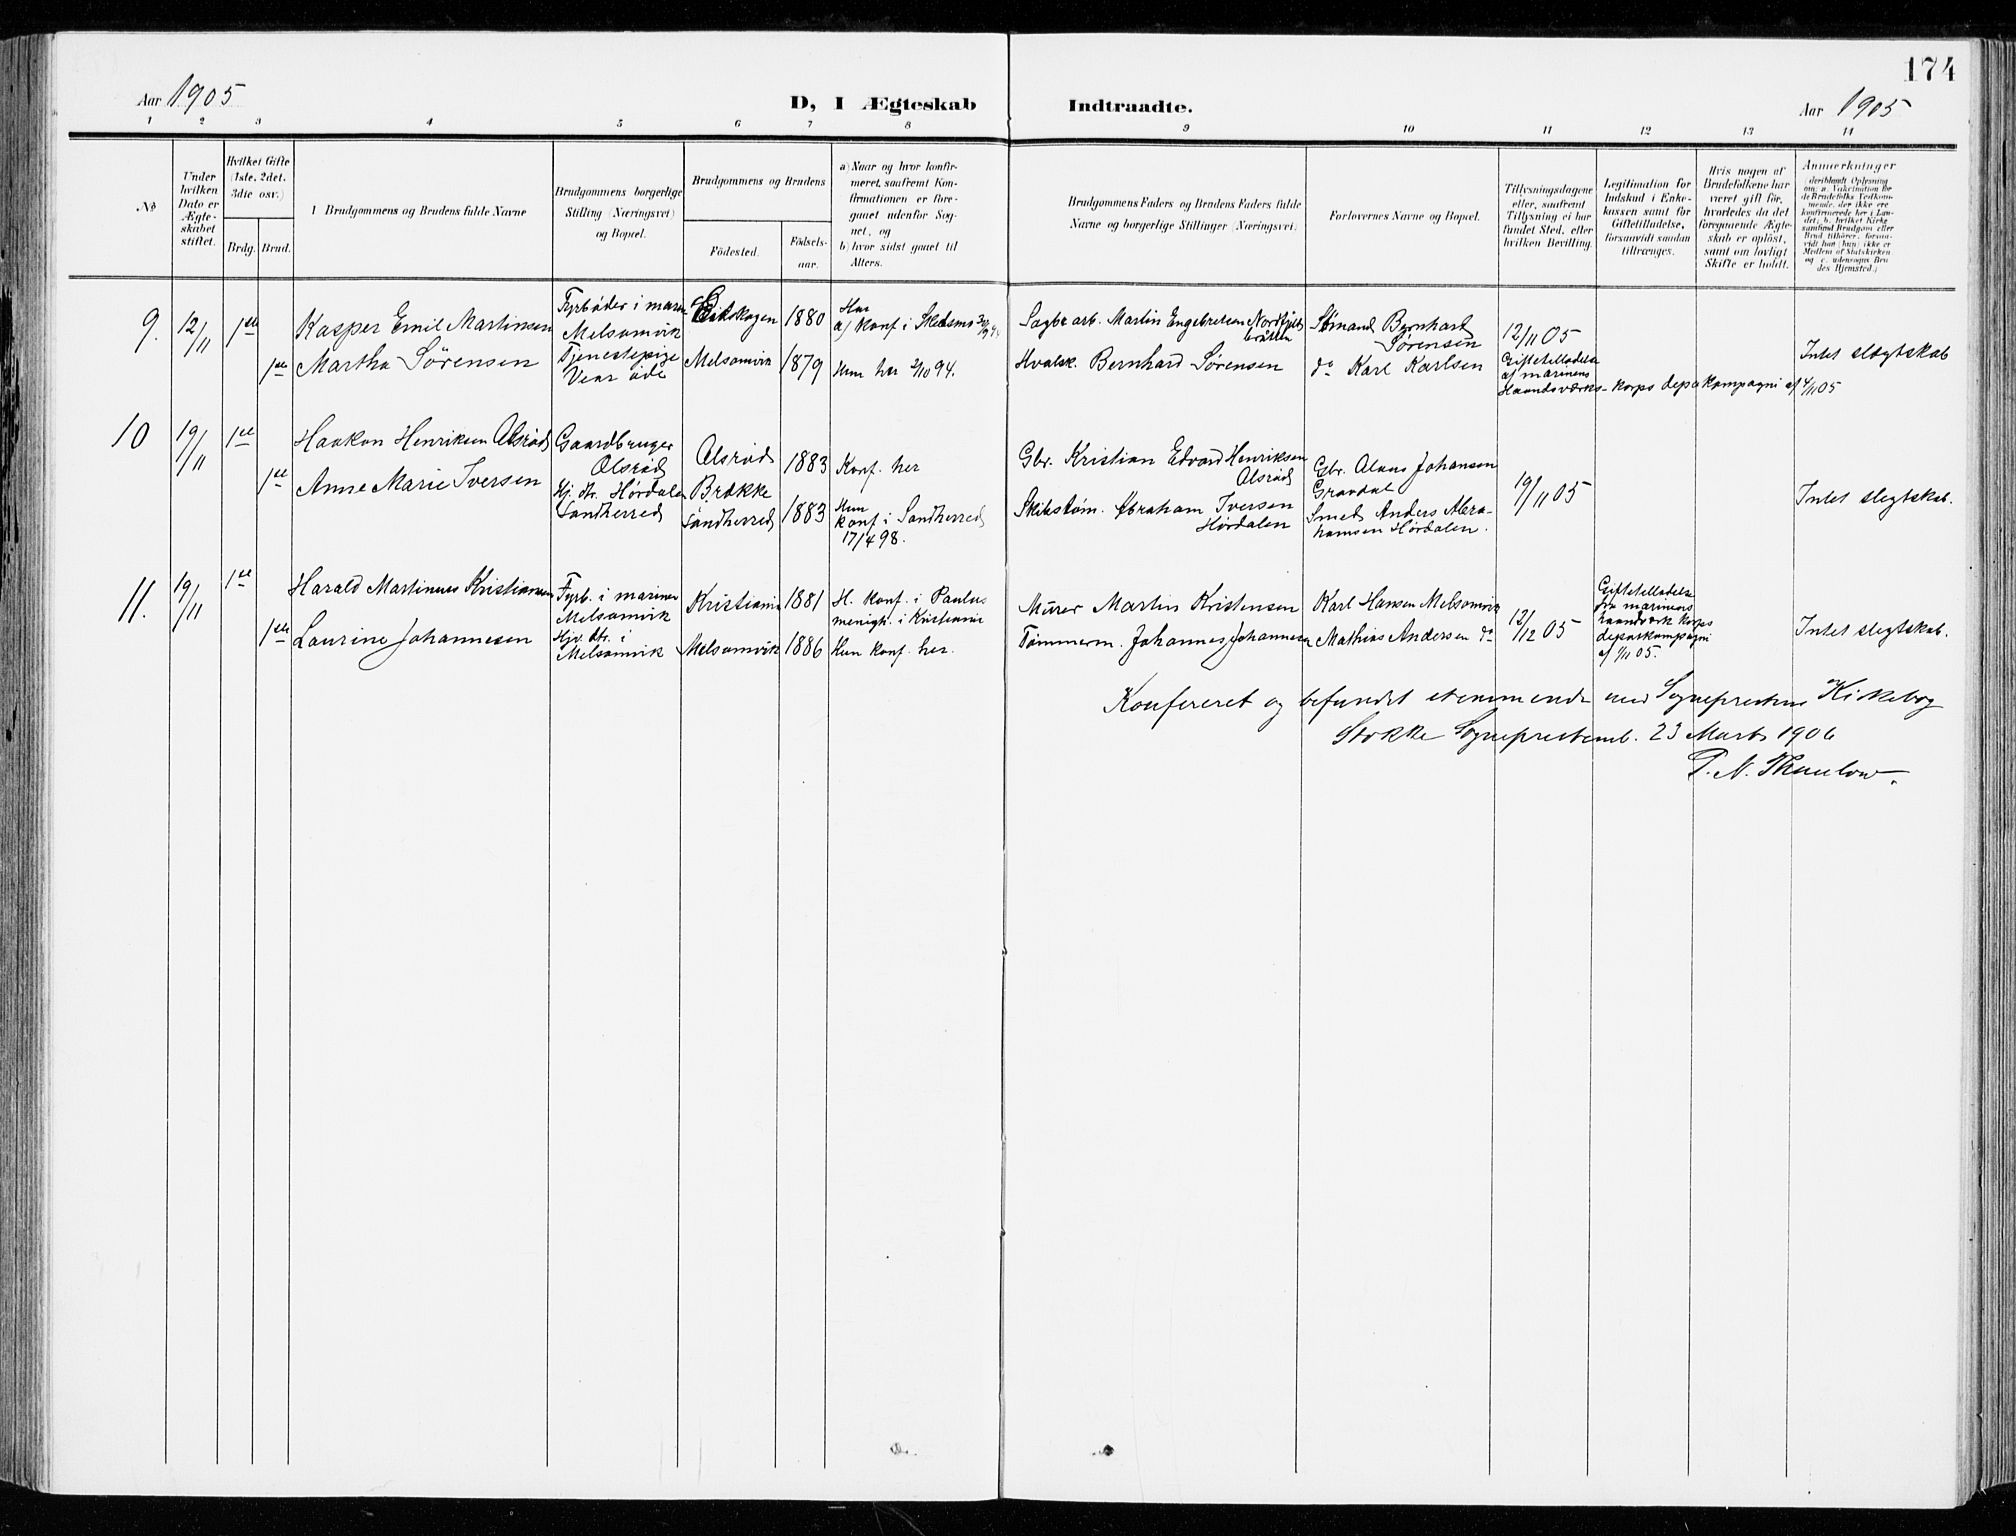 174
Aar 1905
D, I Ægteskab Indtraadte.
Aar 1905
1 2 3 4 5 6 7 8 9 10 11 12 13 14
No
Under hvilken Dato er Ægteskabet stiftet.
Hvilket Gifte (1ste, 2det, 3die osv.)
Brdg. Brud.
1 Brudgommens og Brudens fulde Navne
Brudgommens borgerlige Stilling (Næringsvei) og Bopæl.
Brudgommens og Brudens
Födested. Födsels-aar.
a) Naar og hvor konfirmeret, saafremt Konfirmationen er foregaaet udenfor Sognet, og
b) hvor sidst gaaet til Alters.
Brudgommens Faders og Brudens Faders fulde Navne og borgerlige Stillinger (Næringsvei).
Forlovernes Navne og Bopæl.
Tillysningsdagene eller, saafremt Tillysning ei har fundet Sted, efter hvilken Bevilling.
Legitimation for Indskud i Enkekassen samt for Giftetilladelse, forsaavidt saadan tiltrænges.
Hvis nogen af Brudefolkene har været gift för, hvorledes da det foregaaende Ægteskab er oplöst, samt om lovligt Skifte er holdt.
Anmerkninger
(deriblandt Oplysning om: a. Vakcination for de Brudefolks Vedkommende, der ikke ere konfirmerede her i Landet; b. hvilket Kirkesamfund Brudgom eller Brud tilhörer, forsaavidt han (hun) ikke er Medlem af Statskirken og c. udensogns Brudes Hjemsted.)
9. 12/11 1ste Kasper Emil Martinsen
Fyrbøder i marin
Melsomvik
Eidskogen 1880
Han
a) Konf i Skedsmo
Sagbr arb. Martin Engebretsen Nordfjeld
bråtten
Sømand Bernhard
Sørensen
12/11 05
1ste Martha Sørensen
Tjenestepige
Vear
Melsomvik 1879 Hun her 2/10 94.
Hvalsk. Bernhard Sørensen
do Karl Karlsen
Giftetilladelse
af marinens
Haandsværks-korps depokompagni af 4/11 05
Intet slægtskab
10 19/11 1ste Haakon Henriksen Olsrød
Gaardbruger
Olsrød
Olsrød 1883 Konf. her
Gbr. Kristian Edvard Henriksen
Olsrød
Gbr. Olaus Johansen
Gravdal
19/11 05
1ste Anne Marie Iversen
Hj. dtr. Hørdalen
Sandherred
Brække
Sandherred 1883
Hun
Konf i Sandherred
17/4 98.
Skibstøm. Abraham Iversen
Hørdalen
Smed Anders Abra-
hamsen Hørdalen.
Intet slegtskab.
11. 19/11 1ste Harald Martinus Kristiansen
Fyrb. i marinen
Melsomvik
Kristiania 1881
H. konf. i Paulus
menigh. i Kristiania
Murer Martin Kristensen
Karl Hansen Melsomvik
12/12 05
Giftetilladelse
fra marinens
haandverk korps
depotkompagni
af 1/11 05.
1ste Laurine Johannesen
Hjv. dtr. i
Melsomvik
Melsomvik 1886 Hun konf. her.
Tømmerm. Johannes Johannesen
Mathias Andersen do
Intet slegtskab.
Konfereret og befundet stemmende med Sogneprestens Kirkebog
Stokke Sogneprestemb. 23 Marts 1906
P. N. Thaulow.